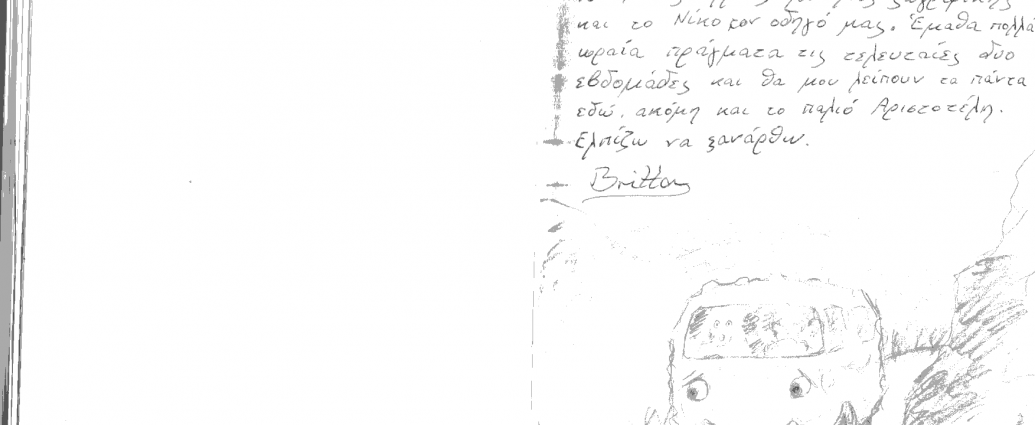 και το Νίκο τον οδηγό μας. Έμαθα πολλά
ωραία πράγματα τις τελευταίες δυο
εβδομάδες και θα μου λείπουν τα πάντα
εδώ, ακόμη και το παλιό Αριστοτέλη.
Ελπίζω να ξανάρθω.
Britton